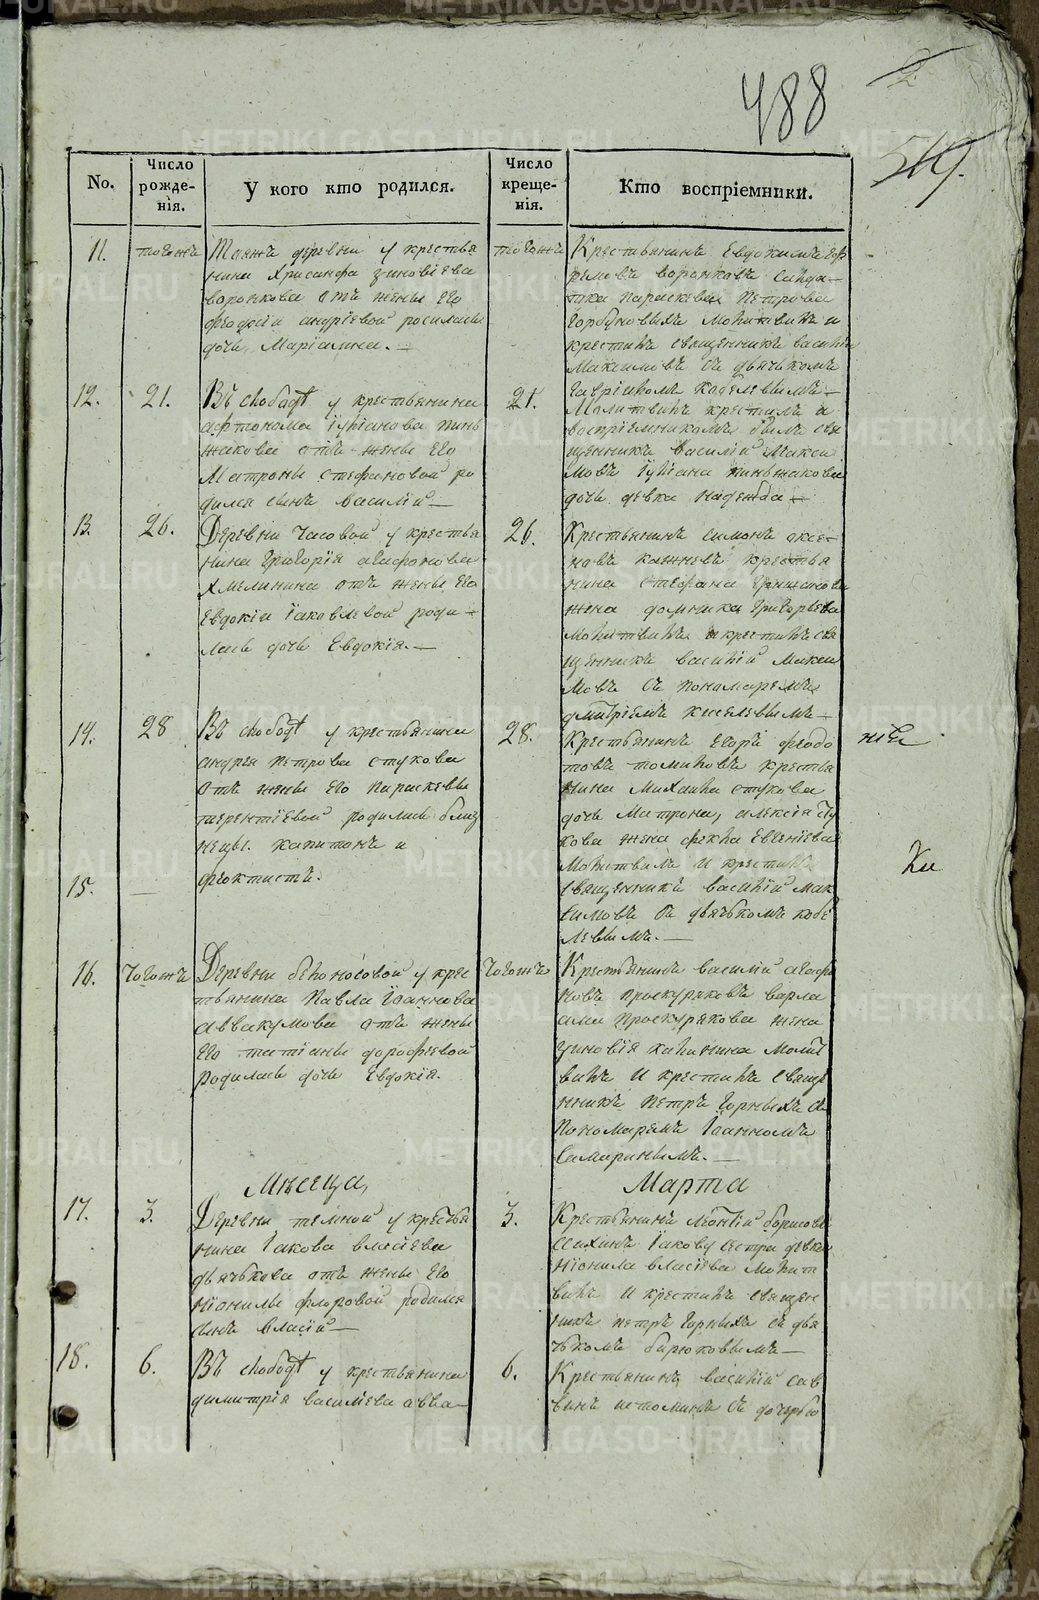 488
519.
No.
Число рожде-нія.
У кого кто родился.
Число креще-нія.
Кто воспріемники.
11.
тогожъ
Тояжъ деревни у крестья
нина Хрисанфа Зиновіева
Воронкова отъ жены его
Феодосіи Андріевой родилась
дочь Маріамна. —
тогожъ
Крестьянинъ Евдокимъ Еф
ремовъ Воронковъ солда-
тка Параскевья Петрова
Горбуновыхъ молитвилъ и
крестилъ священникъ Василій
Максимовъ съ дьячкомъ
Гавріиломъ Кобелевымъ —
12.
21.
Въ слободѣ у крестьянина
Афтонома Іуліанова Пинь
жакова отъ жены его
Матроны Стефановой ро
дился сынъ Василій —
21.
Молитвилъ крестилъ и
воспріемникомъ былъ свя
щенникъ Василій Макси
мовъ Іуліана Пиньжакова
дочь девка Надежда —
13.
26.
Деревни Часовой у крестья
нина Григорія Агафонова
Хмелинина отъ жены его
Евдокіи Іаковлевой роди-
лась дочь Евдокія. —
26.
Крестьянинъ Симонъ Аксе-
новъ крестья
нина Стефана
жена Домника Григорьева
молитвилъ и крестилъ свя
щенникъ Василій Макси
мовъ съ пономаремъ
Дмитріемъ Киселевымъ —
14.
28
Въ слободѣ у крестьянина
Андрея Петрова Стукова
отъ жены его Параскевы
Терентіевой родились близ
нецы. Капитонъ и
15.
—
Феоктистъ.
28.
Крестьянинъ Егоръ Федо
товъ Томиловъ крестья
нина Михаила Стукова
дочь Матрона, Алексія Сту
кова жена Фекла Евгеніева
молитвилъ и крестилъ
священникъ Василій Мак
симовъ съ дьячкомъ Кобе
левымъ. —
16.
тогожъ
Деревни Белоносовой у крес
тьянина Павла Іоаннова
Аввакумова отъ жены
его Татіаны Дорофѣевой
родилась дочь Евдокія.
тогожъ
Крестьянинъ Василій Агафо
новъ Проскуряковъ Варла
ама Проскурякова жена
Зиновія Калинина молит
вилъ и крестилъ свяще
нникъ Петръ Горныхъ съ
пономаремъ Іоанномъ
Самаринымъ. —
Мѣсеца,
Марта
17.
3.
Деревни Темной у крестья
нина Іакова Власіева
Дьячкова отъ жены его
Ніонилы Флоровой родился
сынъ Власій —
3.
Крестьянинъ Леонтій Борисовъ
Іакову сестра девка
Ніонила Власіева молит
вилъ и крестилъ священ
никъ Петръ Горныхъ съ дья
чкомъ Бирюковымъ —
18.
6.
Въ слободѣ у крестьянина
Димитрія Василіева Авва-
6.
Крестьянинъ Василій Сав
винъ Истоминъ съ дочерью